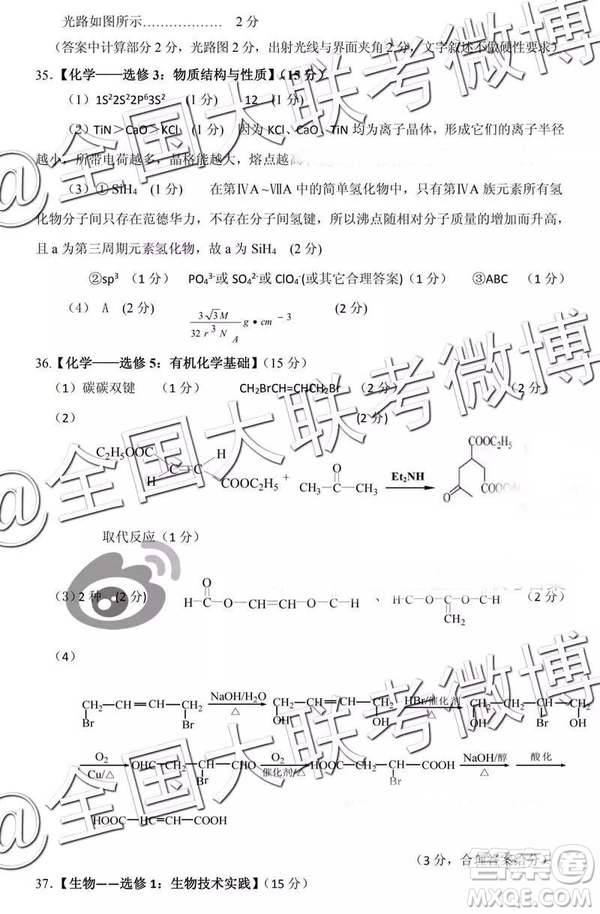 光路如图所示……………… 2 分
（答案中计算部分 2 分，光路图 2 分，出射光线与界面夹角 2 分，文字叙述不做硬性要求）
35.【化学——选修 3：物质结构与性质】（15 分）
（1）1S²2S²2P⁶3S² （1 分） 12 （1 分）
（2）TiN＞CaO＞KCl （1 分） 因为 KCl、CaO、TiN 均为离子晶体，形成它们的离子半径
越小，所带电荷越多，晶格能越大，熔点越高
（3）①SiH₄ （1 分） 在第ⅣA~ⅦA 中的简单氢化物中，只有第ⅣA 族元素所有氢
化物分子间只存在范德华力，不存在分子间氢键，所以沸点随分子质量的增加而升高，
且 a 为第三周期元素氢化物，故 a 为 SiH₄ （2 分）
②sp³ （1 分） PO₄³⁻或 SO₄²⁻或 ClO₄⁻(或其它合理答案)（1 分） ③ABC （1 分）
（4） A （2 分） 3√3M / 32 r³ N_A g•cm⁻³ （2 分）
36.【化学——选修 5：有机化学基础】（15 分）
（1）碳碳双键 （1 分） CH₂BrCH=CHCH₂Br （2 分） （2 分）
（2）
C₂H₅OOC H H COOC₂H₅ + CH₃ O CH₃ Et₂NH COOC₂H₅ O
取代反应（1 分）
（3）2 种 （2 分） H O O O H 、 H O O CH₂ （2 分）
（4）
CH₂ CH=CH CH₂ Br Br NaOH/H₂O △ CH₂ OH OH HBr/催化剂 △ OH Br OH
O₂ Cu/△ OHC CH₂ CH Br CHO O₂ 催化剂/△ HOOC CH₂ CH Br COOH NaOH/醇 △ 酸化
HOOC HC=HC COOH
（3 分，合理答案给分）
37.【生物——选修 1：生物技术实践】（15 分）
@全国大联考微博
@全国大联考微博
@全国大联考微博
答案圈
MXQE.COM